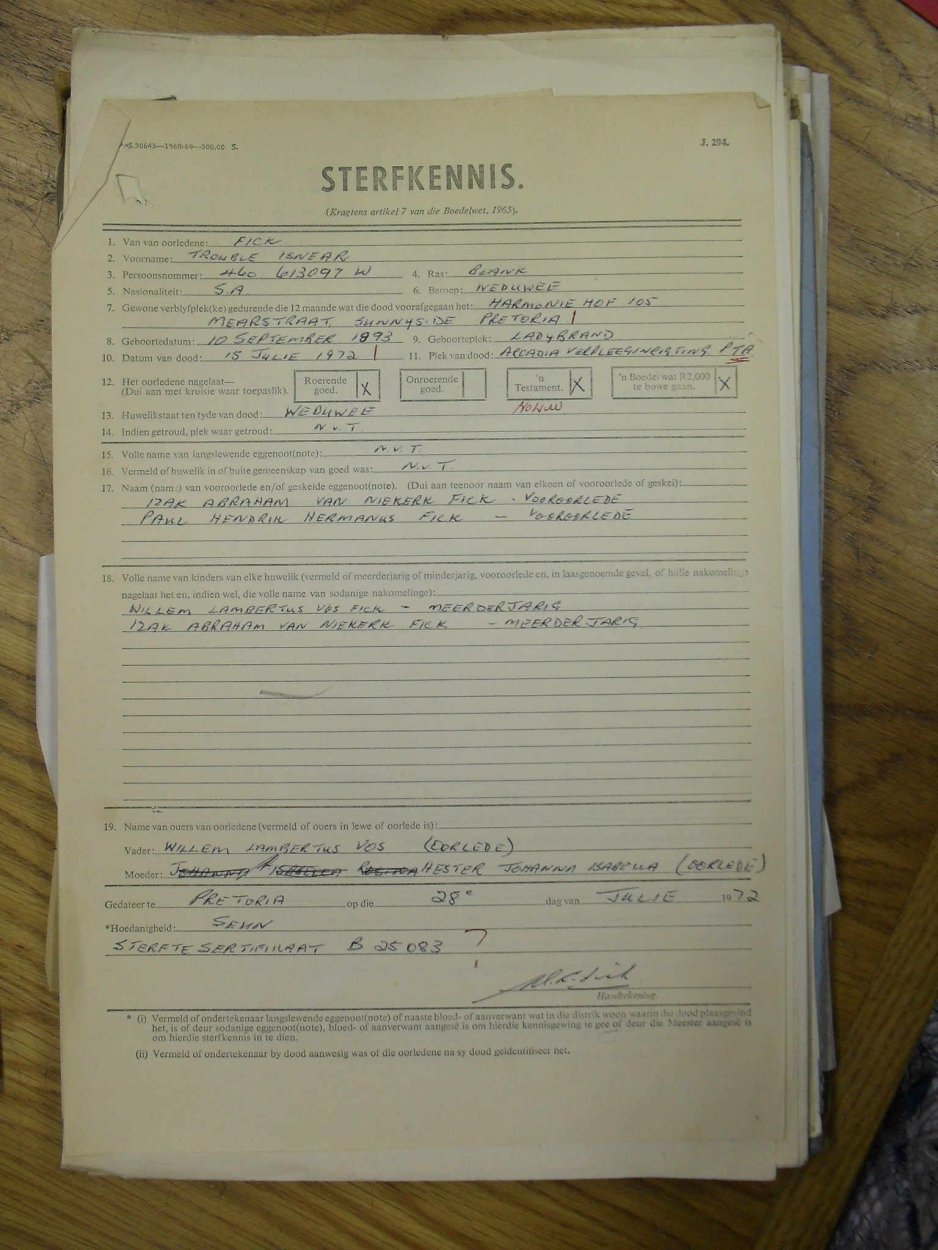 S.30643—1968-69—300,00. S.
J. 294.
STERFKENNIS.
(Kragtens artikel 7 van die Boedelwet, 1965).
1. Van van oorledene: FICK
2. Voorname: TROUBLE ISNEAR
3. Persoonsnommer: 460 613097 W 4. Ras: BLANK
5. Nasionaliteit: S.A. 6. Beroep: WEDUWEE
7. Gewone verblyfplek(ke) gedurende die 12 maande wat die dood voorafgegaan het: HARMONIE HOF 105
MEARSTRAAT, SUNNYSIDE PRETORIA
8. Geboortedatum: 10 SEPTEMBER 1893 9. Geboorteplek: LADYBRAND
10. Datum van dood: 15 JULIE 1972 11. Plek van dood: ARCADIA VERPLEEGINRIGTING. PTA
12. Het oorledene nagelaat— Roerende goed. X Onroerende goed. 'n Testament. X 'n Boedel wat R2,000 te bowe gaan. X
(Dui aan met kruisie waar toepaslik).
13. Huwelikstaat ten tyde van dood: WEDUWEE
14. Indien getroud, plek waar getroud: N.v.T.
15. Volle name van langslewende eggenoot(note): N.v.T.
16. Vermeld of huwelik in of buite gemeenskap van goed was: N.v.T.
17. Naam (name) van vooroorlede en/of geskeide eggenoot(note). (Dui aan teenoor naam van elkeen of vooroorlede of geskei):
IZAK ABRAHAM VAN NIEKERK FICK - VOOROORLEDE
PAUL HENDRIK HERMANUS FICK - VOOROORLEDE
18. Volle name van kinders van elke huwelik (vermeld of meerderjarig of minderjarig, vooroorlede en, in laasgenoemde geval, of hulle nakomelinge
nagelaat het en, indien wel, die volle name van sodanige nakomelinge):
WILLEM LAMBERTUS VOS FICK - MEERDERJARIG
IZAK ABRAHAM VAN NIEKERK FICK - MEERDERJARIG
19. Name van ouers van oorledene (vermeld of ouers in lewe of oorlede is):
Vader: WILLEM LAMBERTUS VOS (OORLEDE)
Moeder: JOHANNA ISABELLA ROSINA HESTER JOHANNA ISABELLA (OORLEDE)
Gedateer te PRETORIA op die 28e dag van JULIE 1972
*Hoedanigheid: SEUN
STERFTE SERTIFIKAAT B 25083 ?
Handtekening.
* (i) Vermeld of ondertekenaar langslewende eggenoot(note) of naaste bloed- of aanverwant wat in die distrik woon waarin die dood plaasgevind
het, is of deur sodanige eggenoot(note), bloed- of aanverwant aangesê is om hierdie kennisgewing te gee of deur die Meester aangesê is
om hierdie sterfkennis in te dien.
(ii) Vermeld of ondertekenaar by dood aanwesig was of die oorledene na sy dood geïdentifiseer het.